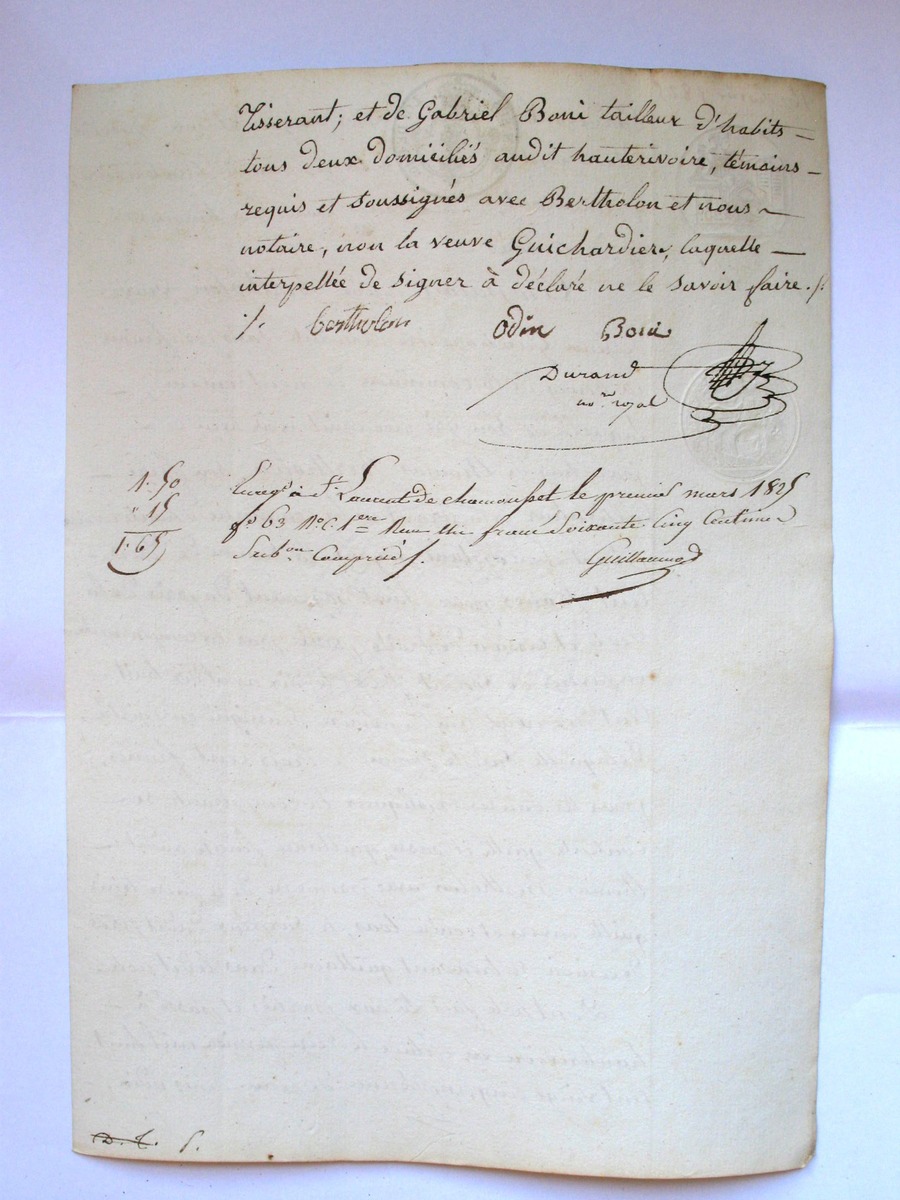 tisserant; et de Gabriel Boni tailleur d'habits
tous deux domiciliés audit hauterivoire, témoins
requis et soussignés avec Bertholon et nous
notaire, non la veuve Guichardier, laquelle
interpellée de signer à déclaré ne le savoir faire ./.
/. bertholon Odin Boni
Durand
no.re royal
1.50 Enreg.é à S.t Laurent de chamousset le premier mars 1825
" 15 f.o 63 R.o C. 1.ere Reçu Un franc Soixante Cinq Centimes
1.65 Sub.on Comprise ./. Guillaumod
D. t. 5.